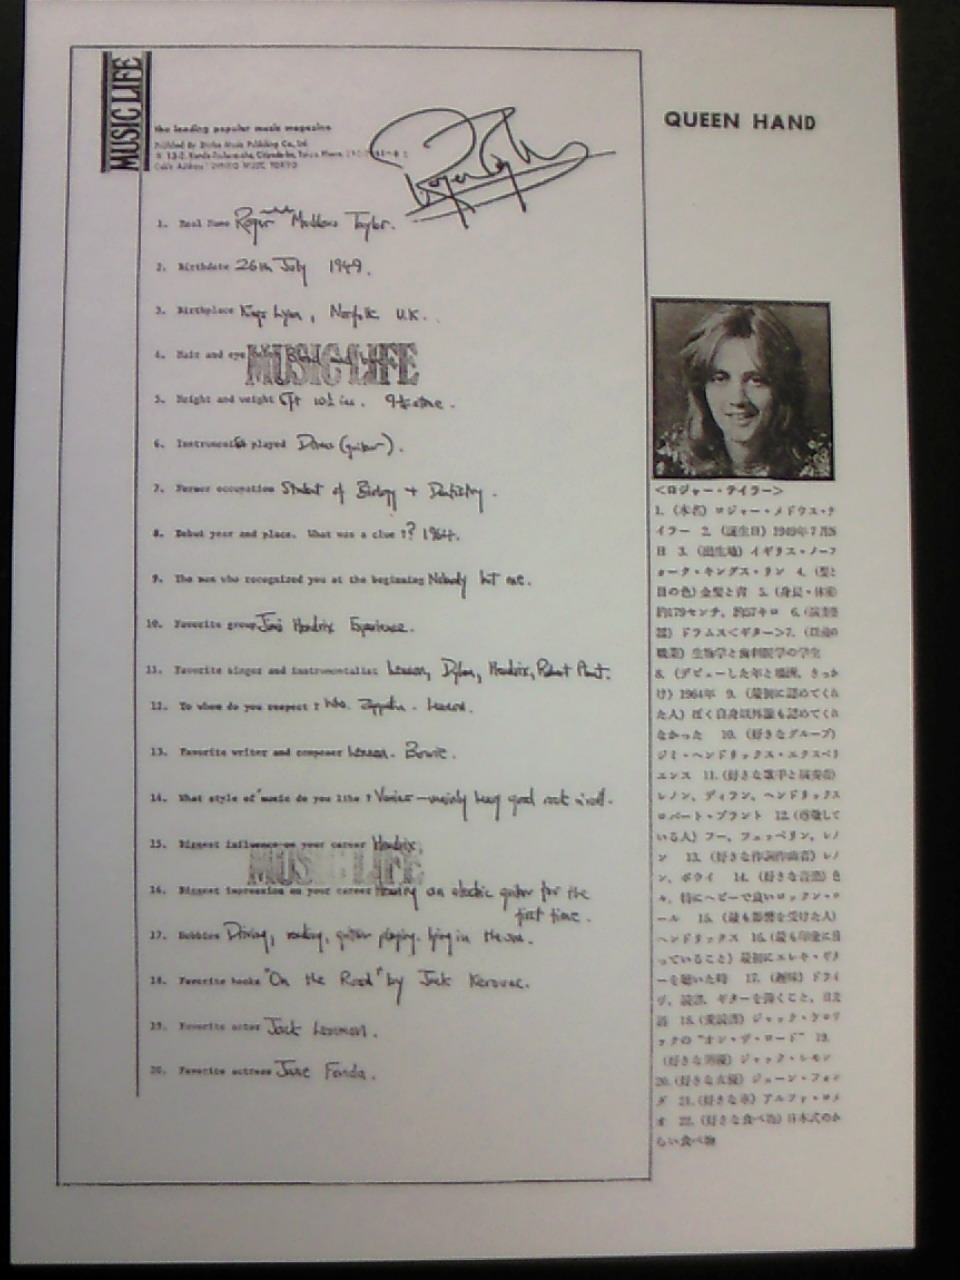 MUSIC LIFE
the leading popular music magazine
QUEEN HAND
1. Real Name Roger Meddows Taylor.
2. Birthdate 26th July 1949.
3. Birthplace Kings Lynn, Norfolk U.K.
4. Hair and eye
MUSIC LIFE
5. Height and weight 5ft 10½ ins. 9½ stone.
6. Instruments played Drums (guitar).
7. Former occupation Student of Biology + Dentistry.
8. Debut year and place. What was a clue ? 1964.
9. The man who recognized you at the beginning Nobody but me.
10. Favorite group Jimi Hendrix Experience.
11. Favorite singer and instrumentalist Lennon, Dylan, Hendrix, Robert Plant.
12. To whom do you respect ? Who. Zeppelin. Lennon.
13. Favorite writer and composer Lennon. Bowie.
14. What style of music do you like ? Various — mainly heavy good rock n'roll.
15. Biggest influence on your career Hendrix.
MUSIC LIFE
16. Biggest impression on your career Hearing an electric guitar for the
first time.
17. Hobbies Driving, reading, guitar playing. lying in the sun.
18. Favorite books "On the Road" by Jack Kerouac.
19. Favorite actor Jack Lemmon.
20. Favorite actress Jane Fonda.
<ロジャー・テイラー>
1.（本名）ロジャー・メドウス・テ
イラー 2.（誕生日）1949年7月26
日 3.（出生地）イギリス・ノーフ
ォーク・キングス・リン 4.（髪と
目の色）金髪と青 5.（身長・体重）
約179センチ、約57キロ 6.（演奏楽
器）ドラムス<ギター>7.（以前の
職業）生物学と歯科医学の学生
8.（デビューした年と場所、きっか
け）1964年 9.（最初に認めてくれ
た人）ぼく自身以外誰も認めてくれ
なかった 10.（好きなグループ）
ジミ・ヘンドリックス・エクスペリ
エンス 11.（好きな歌手と演奏者）
レノン、ディラン、ヘンドリックス
ロバート・プラント 12.（尊敬して
いる人）フー、ツェッペリン、レノ
ン 13.（好きな作詞作曲者）レノ
ン、ボウイ 14.（好きな音楽）色
々、特にヘビーで良いロックンロ
ール 15.（最も影響を受けた人）
ヘンドリックス 16.（最も印象に残
っていること）最初にエレキ・ギタ
ーを聴いた時 17.（趣味）ドライ
ブ、読書、ギターを弾くこと、日光
浴 18.（愛読書）ジャック・ケロワ
ックの"オン・ザ・ロード" 19.
（好きな男優）ジャック・レモン
20.（好きな女優）ジェーン・フォン
ダ 21.（好きな車）アルファ・ロメ
オ 22.（好きな食べ物）日本式のか
らい食べ物